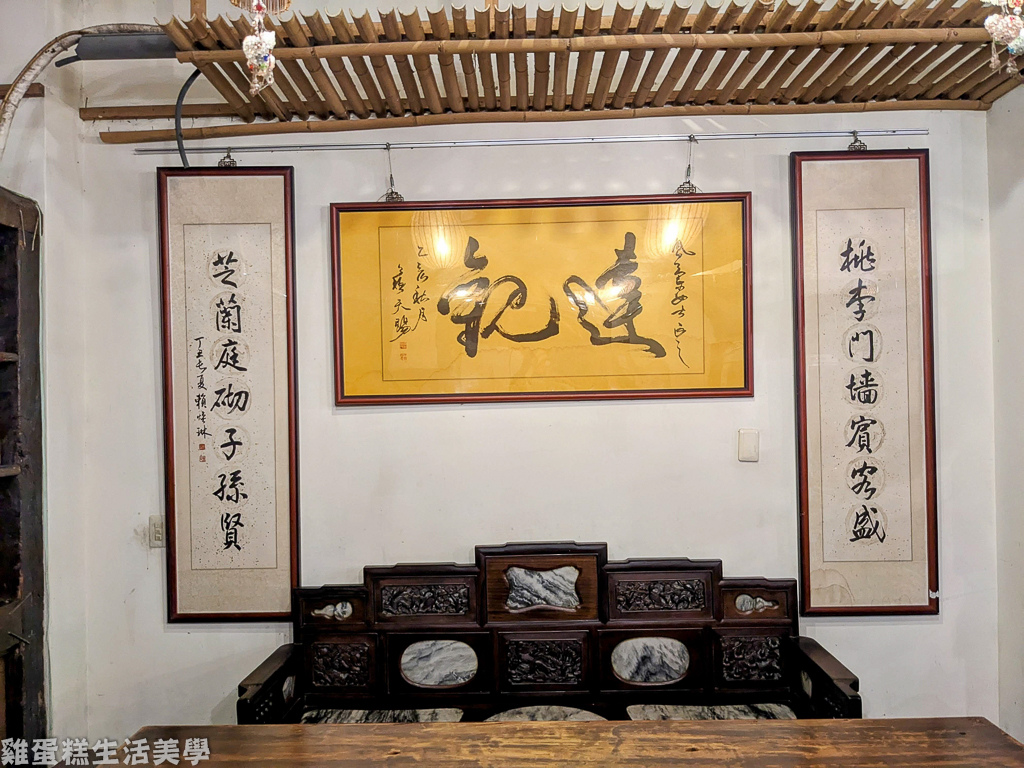 桃李門墻賓客盛
達觀
乙亥秋月
天賜
芝蘭庭砌子孫賢
丁丑長夏賴
雞蛋糕生活美學